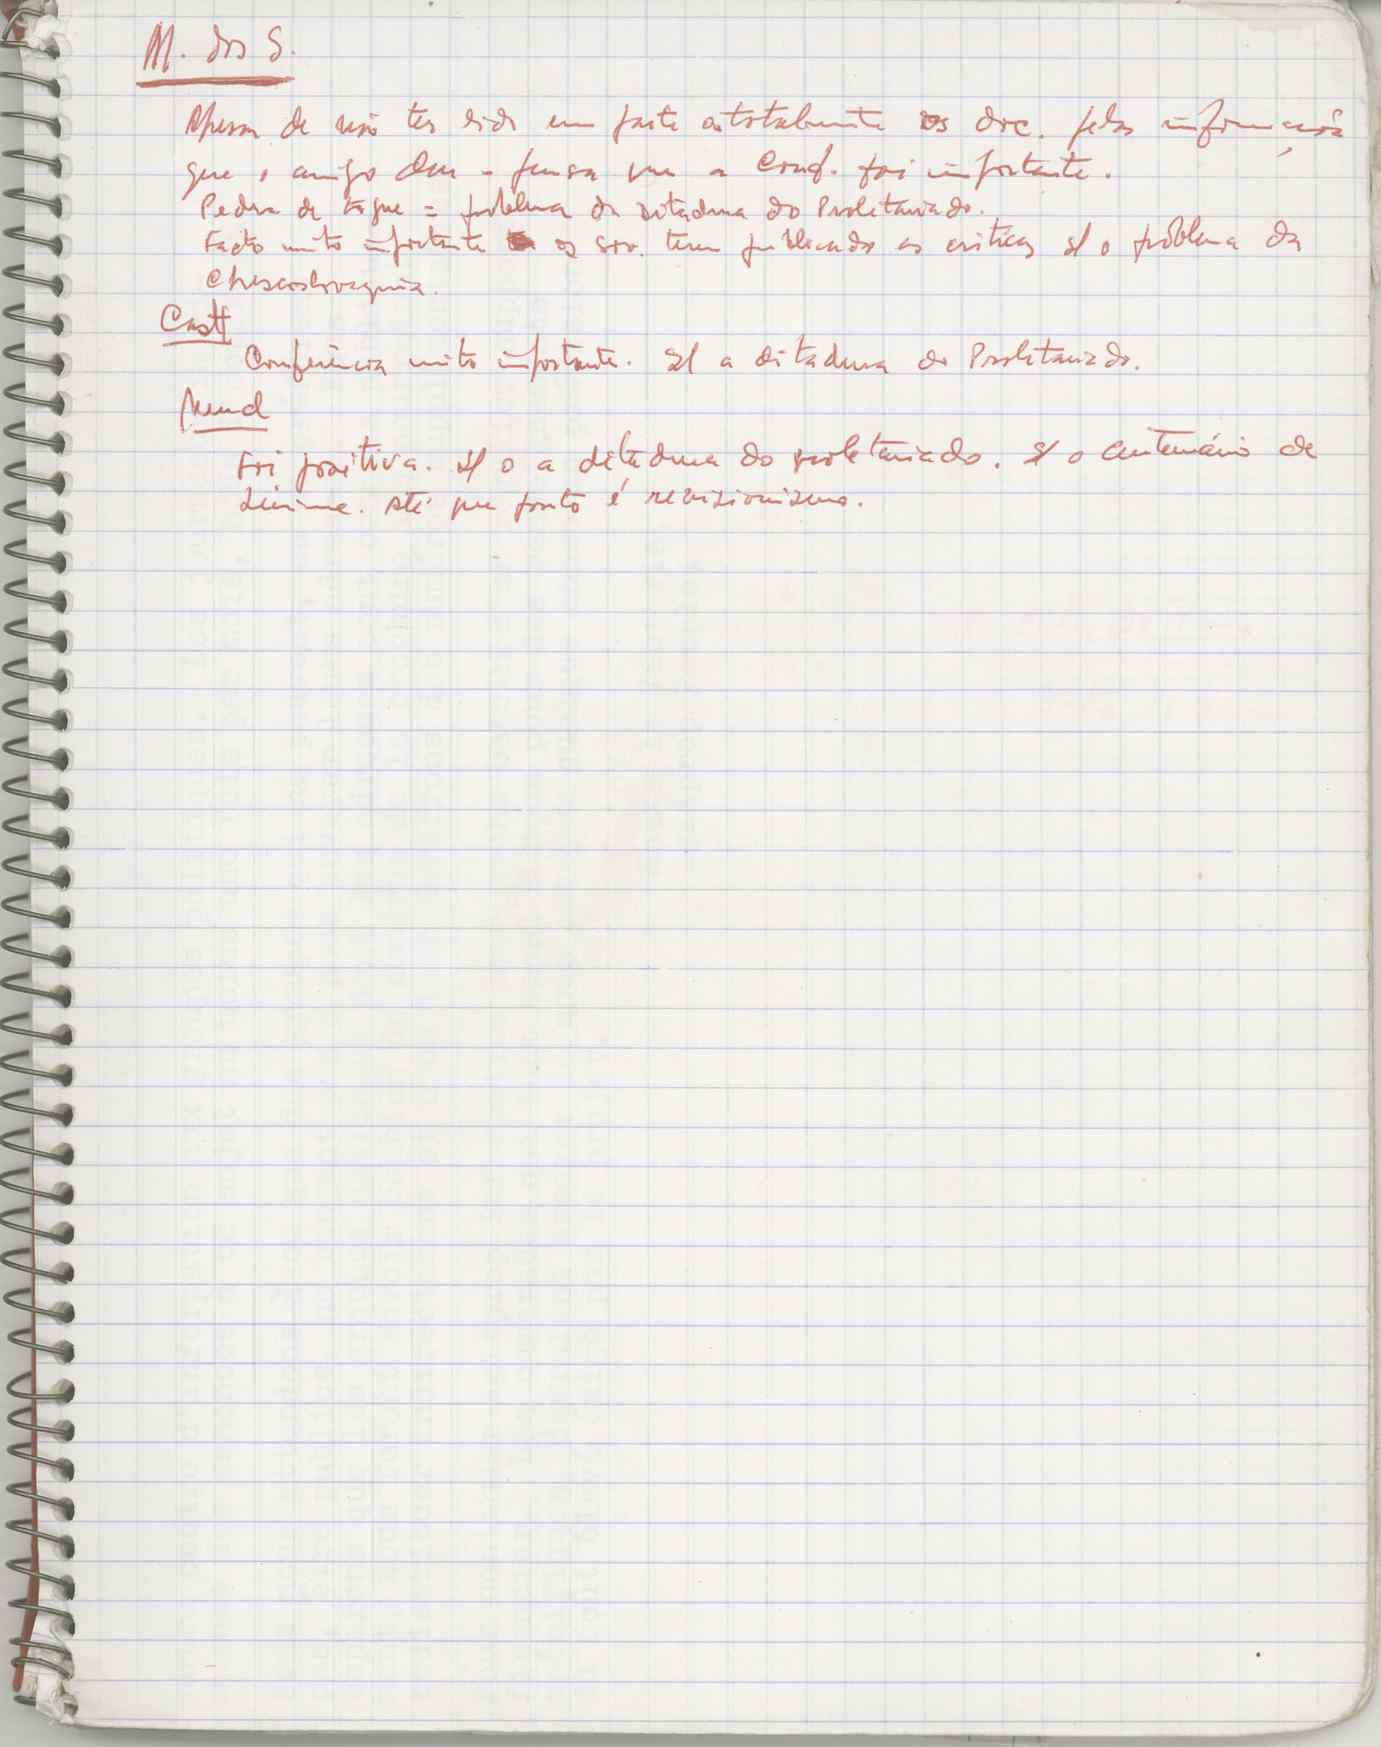 M. dos S.
Apesar de não ter lido em parte a totalmente os doc. pelas informações
que o amigo deu - pensa que a Conf. foi importante.
Pedra de toque = problema da ditadura do Proletariado.
Facto muito importante os sov. terem publicado as críticas s/ o problema da
Checoslovaquia.
Cast
Conferência muito importante. s/ a ditadura do Proletariado.
Foi positiva. s/ o a ditadura do proletariado. s/ o centenário de
Lénine. Até que ponto é revizionismo.